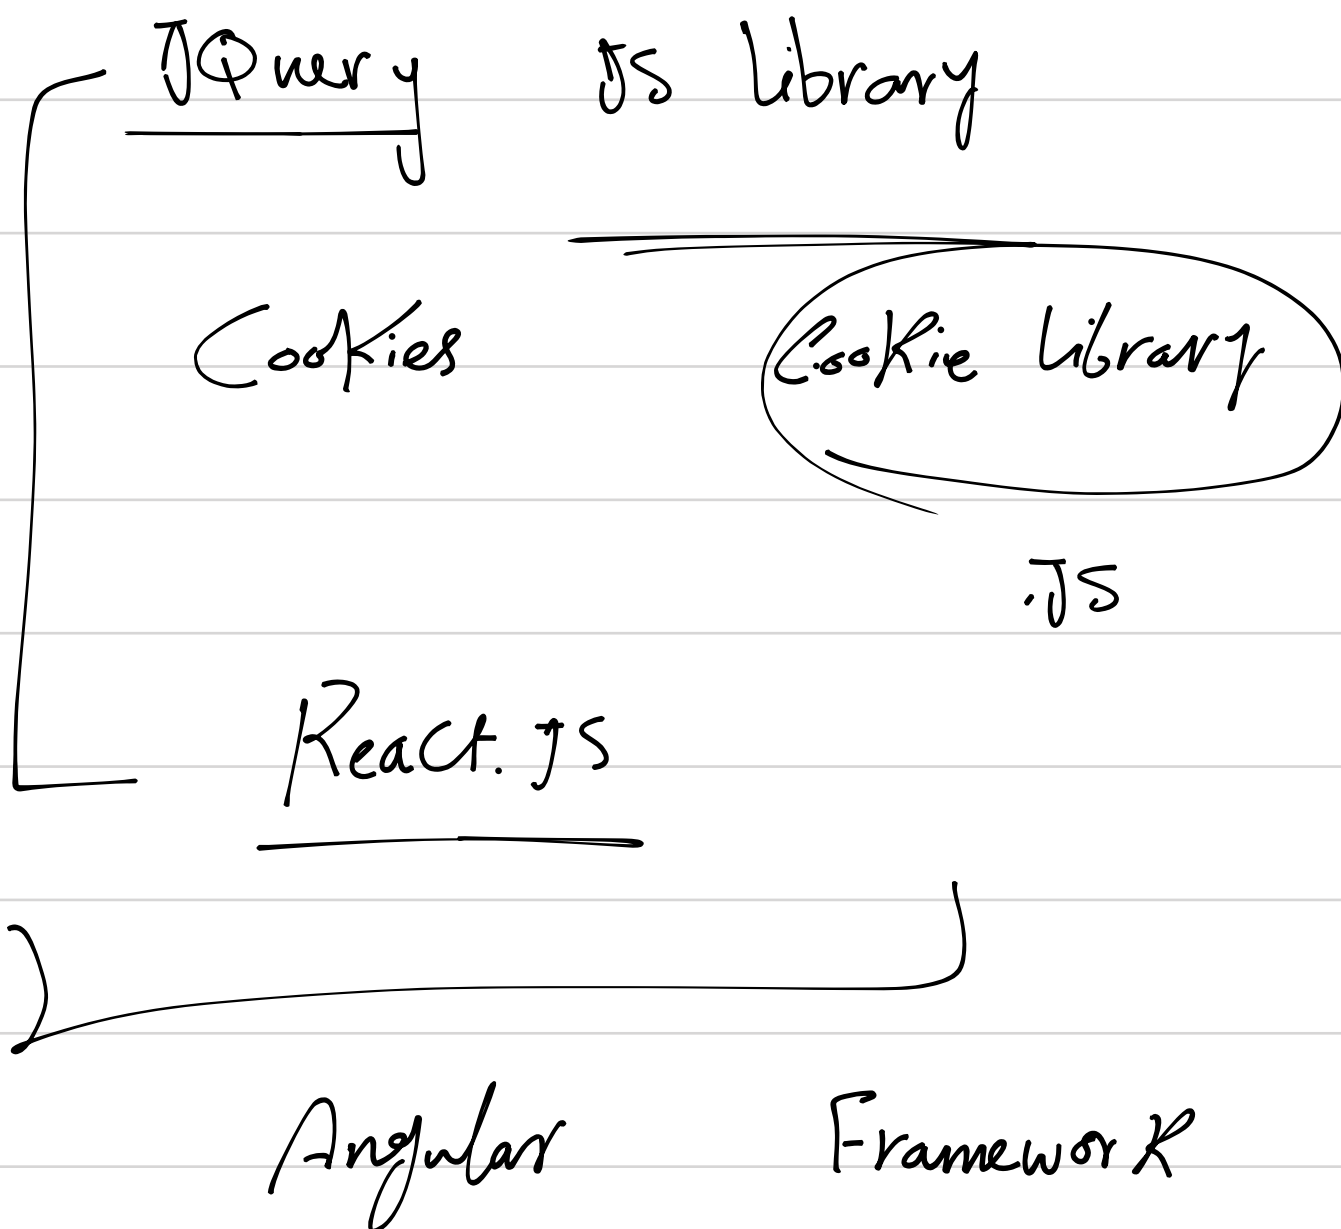 JQuery JS library
Cookies Cookie library
.JS
React.JS
Angular Framework